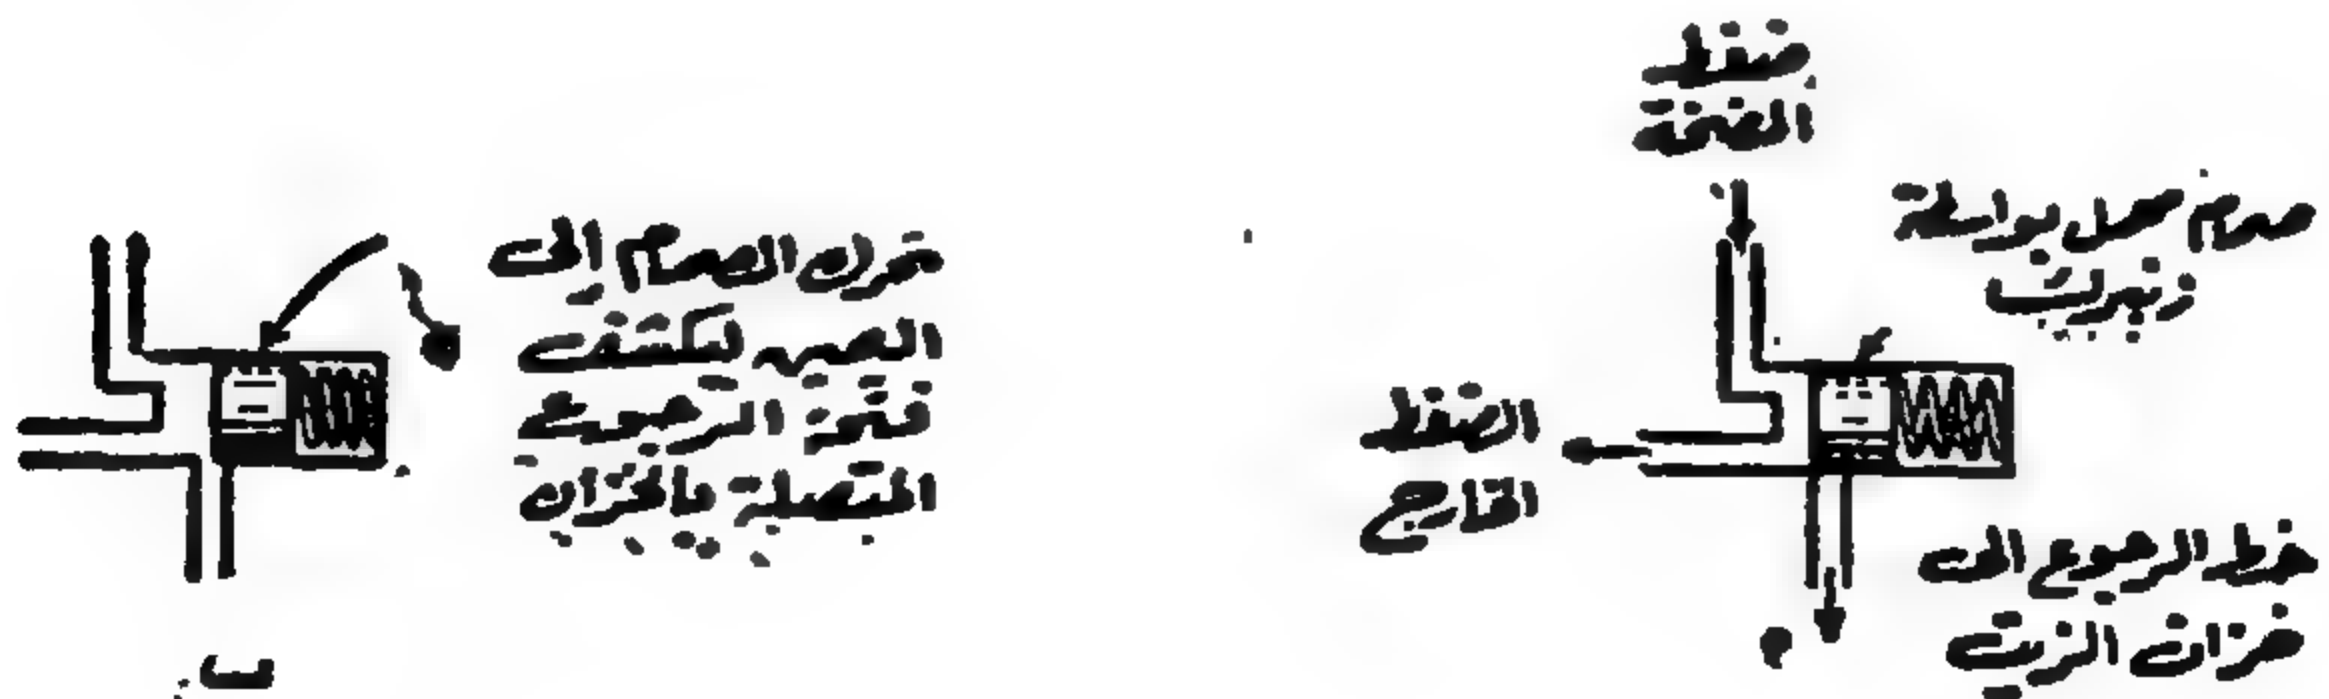 ضغط
المضخة
صمام محمل بواسطة
زنبرك
الضغط
الخارج
خط الرجوع إلى
خزان الزيت
تحرك الصمام إلى
اليمين ليكشف
فتحة الرجوع
المتصلة بالخزان
ب